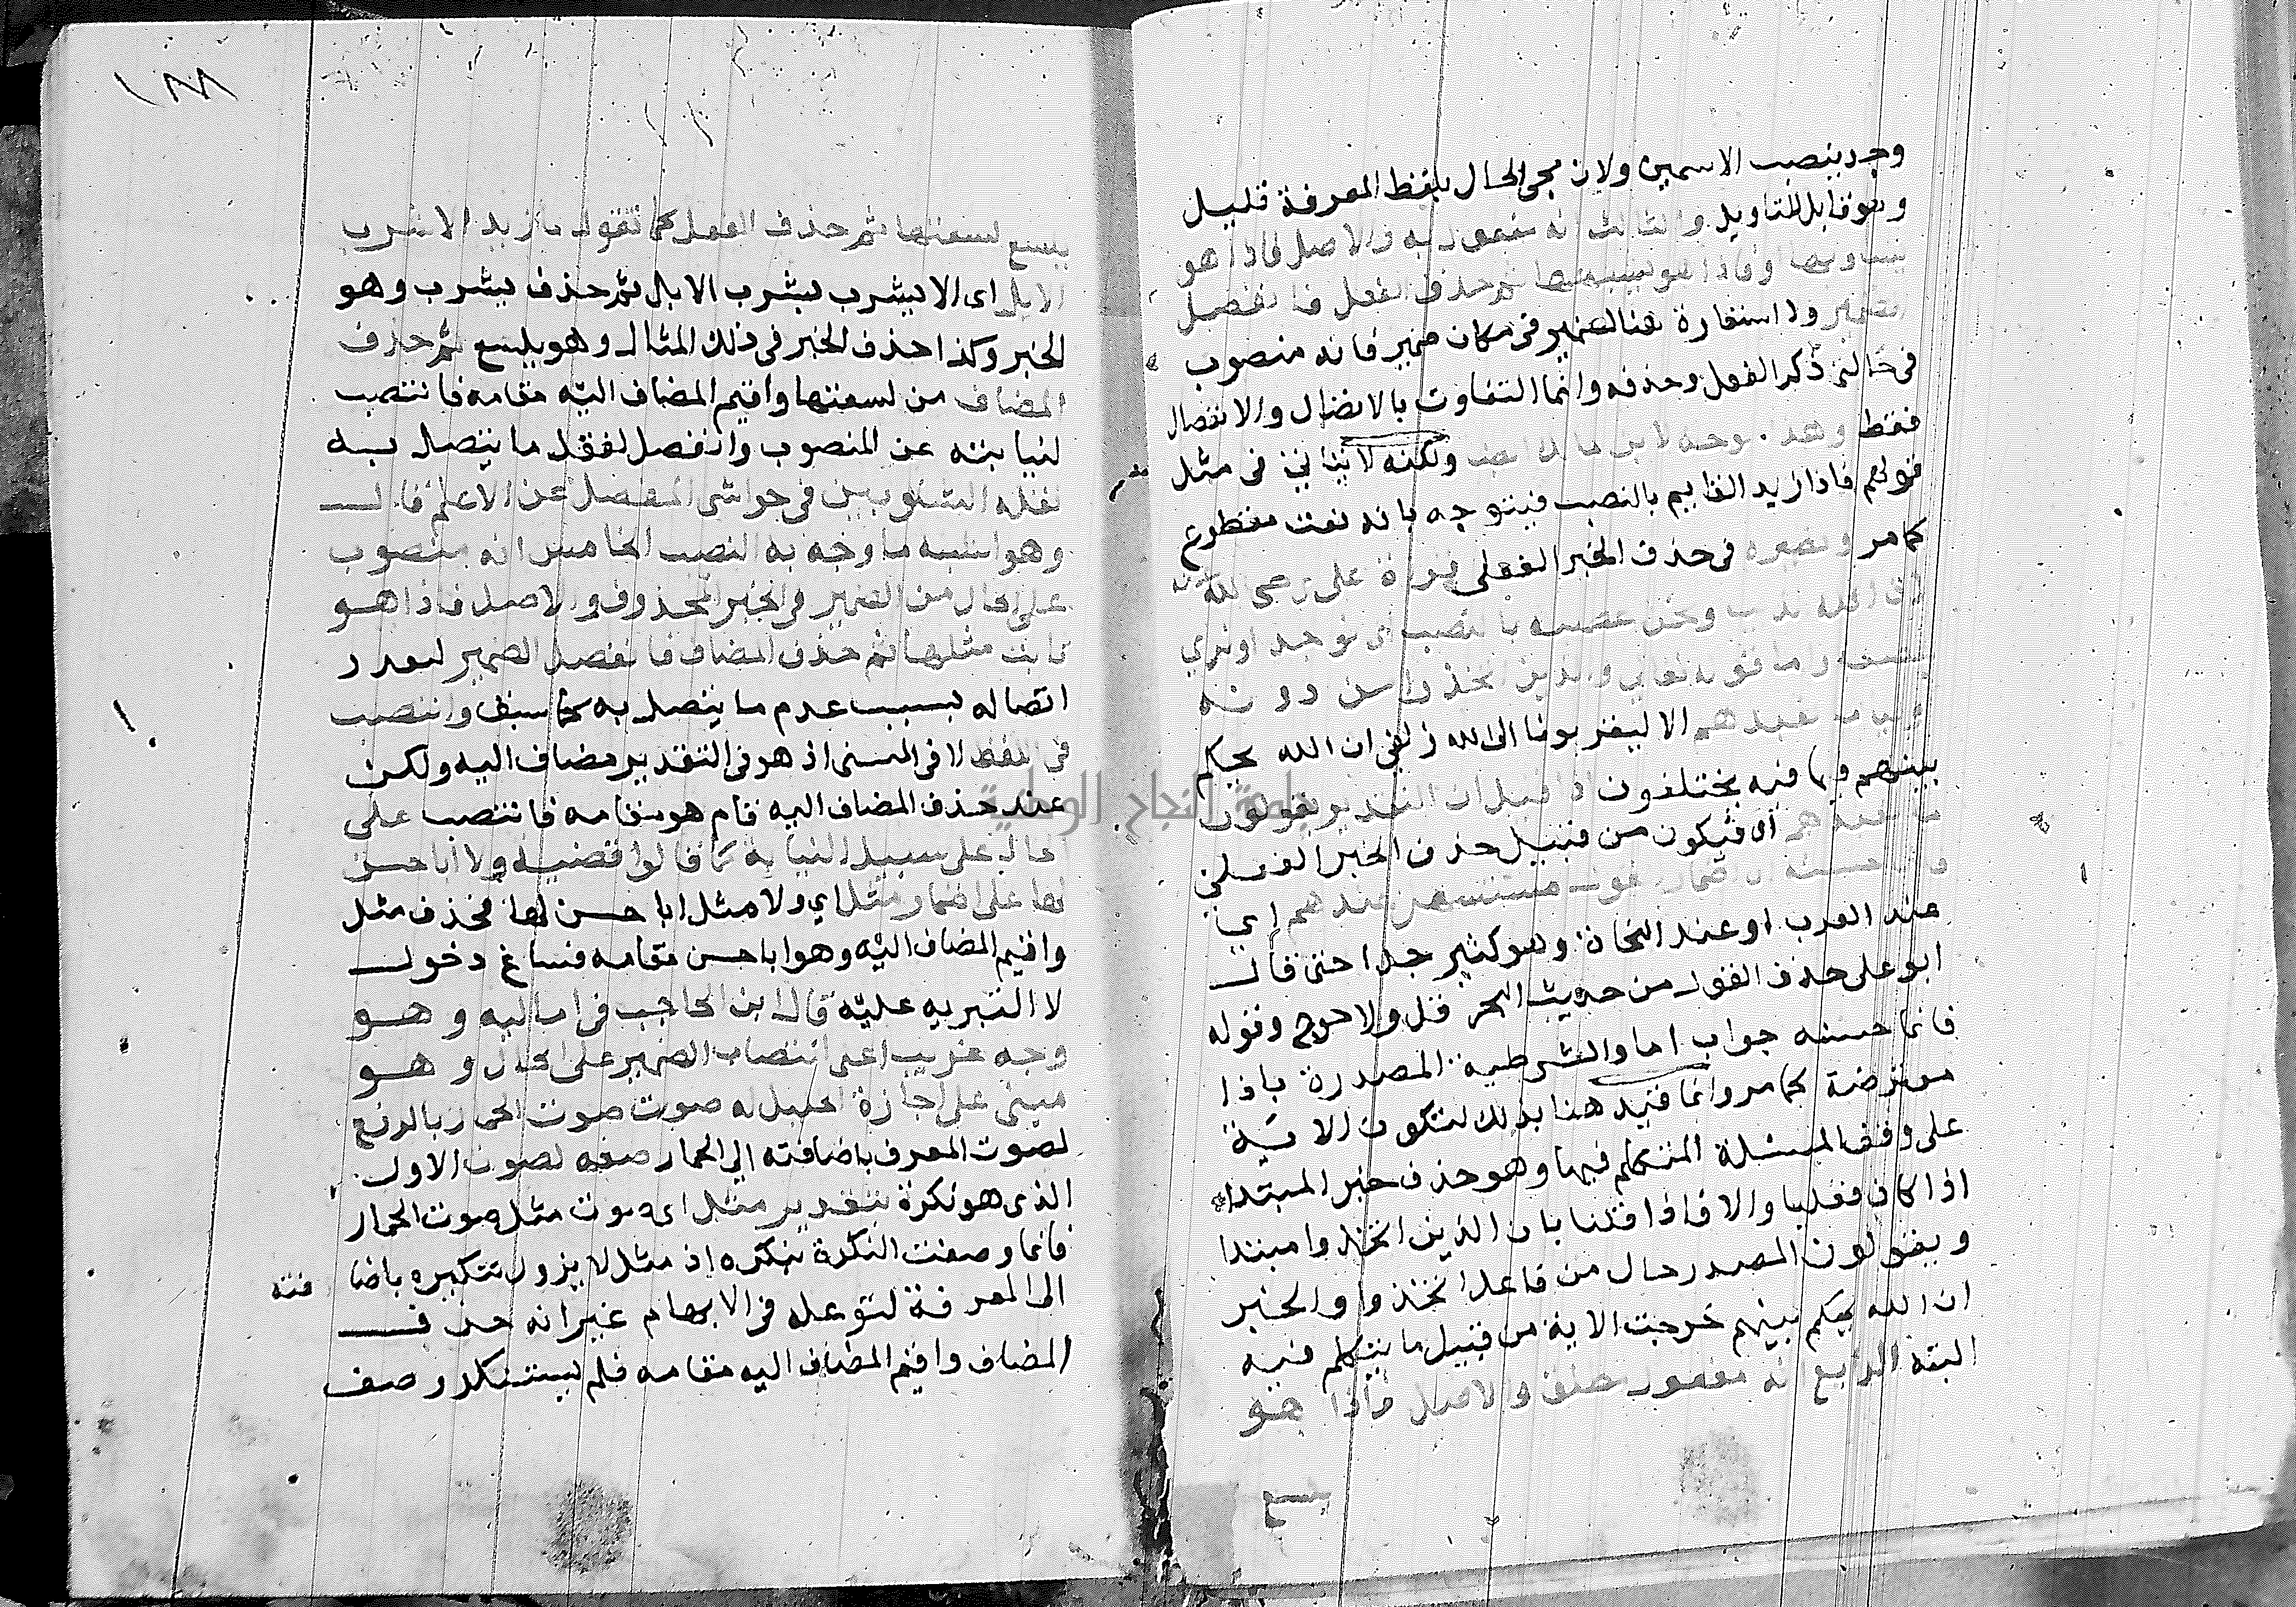 وجد بنصب الاسمين ولان مجي الحال بلفظ المعرفة قليل
وهو قابل للتاويل والثالث انه مفعول به والاصل فاذا هو
يساويها او فاذا هو يشبهها ثم حذف الفعل فانفصل
الضمير ولا استعارة هنا لضمير في مكان ضمير فانه منصوب
في حالتي ذكر الفعل وحذفه وانما التفاوت بالاتصال والانفصال
فقط وهذا لابن مالك ولكنه لا يتاتى في مثل
قولهم فاذا زيد القايم بالنصب فيتوجه بانه نعت مقطوع
كما مر ونظيره في حذف الخبر الفعلي قراة على رضي الله
ونحن عصبة بالنصب اي نوجد او نرى
واما قوله تعالى والذين اتخذوا من دونه
ما نعبدهم الا ليقربونا الى الله زلفى ان الله يحكم
بينهم فيما فيه يختلفون اذا قيل ان التقدير يقولون
ما نعبدهم اي فيكون من قبيل حذف الخبر الفعلي
مستسهل عندهم اي
عند العرب او عند النحاة وهو كثير جدا حتى قال
ابو على حذف القول من حديث البحر قل ولا حرج وقوله
فانما حسنه جواب اما والشرطية المصدرة باذا
معترضة كما مر وانما قيد هنا بذلك لتكون الاية
على وفق المسئلة المتكلم فيها وهو حذف خبر المبتدا
اذا كان فعليا والا فاذا قلنا بان الذين اتخذوا مبتدا
ويقولون المصدر حال من فاعل اتخذوا والخبر
ان الله يحكم بينهم خرجت الاية من قبيل ما يتكلم فيه
البتة الرابع انه مفعول مطلق والاصل فاذا هو
يلسع
١٨٨
يلسع لسعتها ثم حذف الفعل كما تقول ما زيد الا شرب
الابل اي الا يشرب شرب الابل ثم حذف يشرب وهو
الخبر وكذا حذف الخبر في ذلك المثال وهو يلسع ثم حذف
المضاف من لسعتها واقيم المضاف اليه مقامه فانتصب
لنيابته عن المنصوب وانفصل لفقد ما يتصل به
نقله الشلوبين في حواشي المفصل عن الاعلم قال
وهو اشبه ما وجه به النصب الخامس انه منصوب
على الحال من الضمير في الخبر المحذوف والاصل فاذا هو
ثابت مثلها ثم حذف المضاف فانفصل الضمير لتعذر
اتصاله بسبب عدم ما يتصل به كما سبق وانتصب
في اللفظ لا في المعنى اذ هو في التقدير مضاف اليه ولكن
عند حذف المضاف اليه قام هو مقامه فانتصب على
الحال على سبيل النيابة كما قالوا قضية ولا ابا حسن
لها على اضمار مثل اي ولا مثل ابا حسن لها فحذف مثل
واقيم المضاف اليه وهو ابا حسن مقامه فساغ دخول
لا التبرية عليه قال ابن الحاجب في اماليه وهو
وجه غريب اعني انتصاب الضمير على الحال وهو
مبني على اجازة الخليل له صوت صوت الحمار بالرفع
لصوت المعرف باضافته الى الحمار صفة لصوت الاول
الذي هو نكرة بتقدير مثل اي صوت مثل صوت الحمار
فانما وصفت النكرة بنكرة اذ مثل لا يزول تنكيره باضا فته
الى المعرفة لتوغله في الابهام غير انه حذف
المضاف واقيم المضاف اليه مقامه فلم يستنكر وصف
جامعة النجاح الوطنية